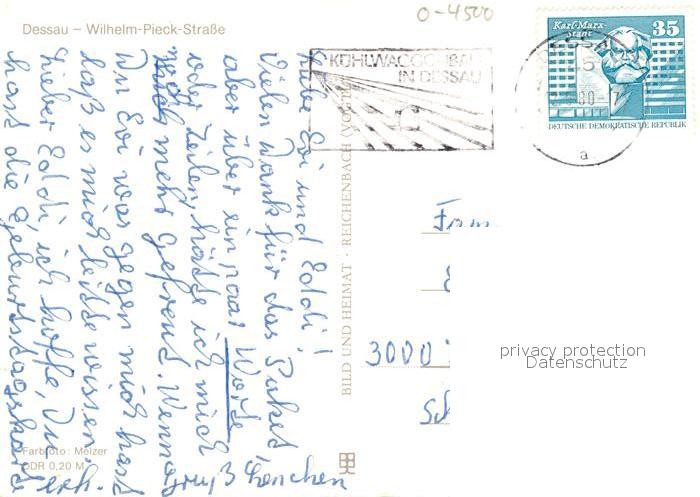 Dessau – Wilhelm-Pieck-Straße
0-4500
Karl-Marx-Stadt 35
DEUTSCHE DEMOKRATISCHE REPUBLIK
KÜHLWAGGONBAU
IN DESSAU
DESSA
80
a
Liebe Evi und Eddi!
Vielen Dank für das Paket,
aber über ein paar Worte
oder Zeilen, hätte ich mich
noch mehr gefreut. Wenn
Du Evi was gegen mich hast
laß es mich bitte wissen.
Lieber Eddi, ich hoffe, Du
hast die Geburtstagskarte
erh. Gruß Lenchen
BILD UND HEIMAT · REICHENBACH (VOGTL
Fam
3000
Sch
privacy protection
Datenschutz
Farbfoto: Melzer
DDR 0,20 M